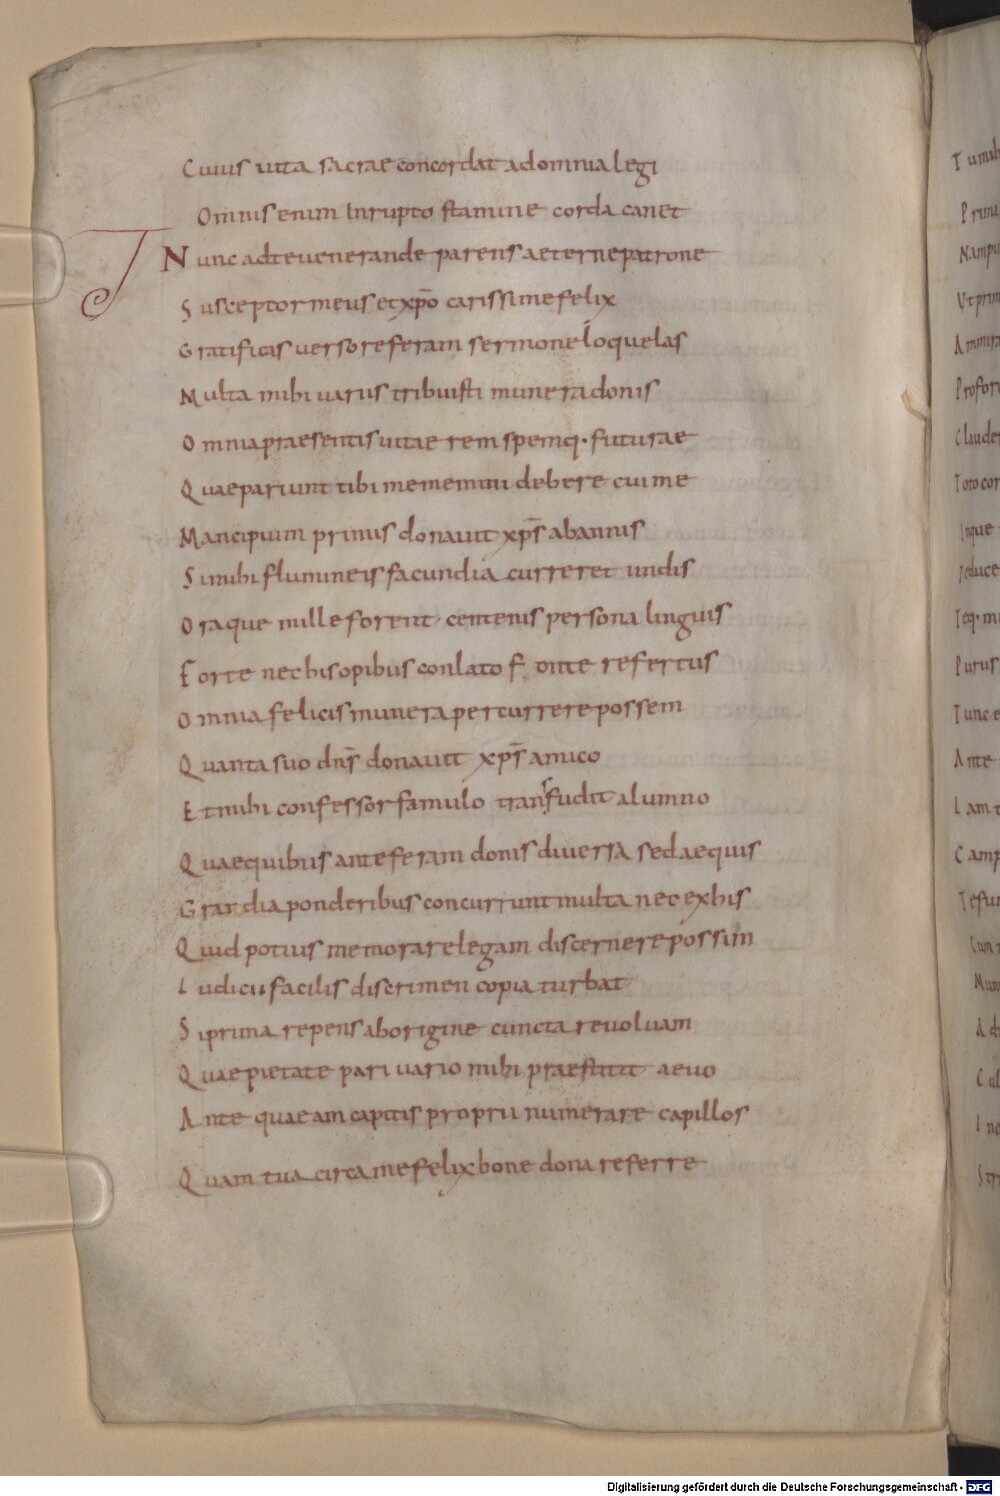 Cuius uita sacrae concordat ad omnia legi
Omnis enim Inrupto stamine corda canet
Nunc ad te uenerande parens aeterne patrone
Susceptor meus et xp̄o carissime felix
Gratificas uerso referam sermone loquelas
Multa mihi uariis tribuisti munera donis
Omnia praesentis uitae rem spemq· futurae
Quae pariunt tibi me memini debere cui me
Mancipium primis donauit xp̄s ab annis
Si mihi flumineis facundia curreret undis
Oraque mille forent centenis persona linguis
Forte nec his opibus conlato fonte refertus
Omnia felicis munera percurrere possem
Quanta suo dn̄s donauit xp̄s amico
Et mihi confessor famulo transfudit alumno
Quae quibus anteferam donis diuersa sed aequis
Grandia ponderibus concurrunt multa nec ex his
Quid potius memorare legam discernere possim
Iudicii facilis discrimen copia turbat
Si prima repens ab origine cuncta reuoluam
Quae pietate pari uario mihi praestitit aeuo
Ante queam capitis proprii numerare capillos
Quam tua circa me felix bone dona referre
Digitalisierung gefördert durch die Deutsche Forschungsgemeinschaft - DFG